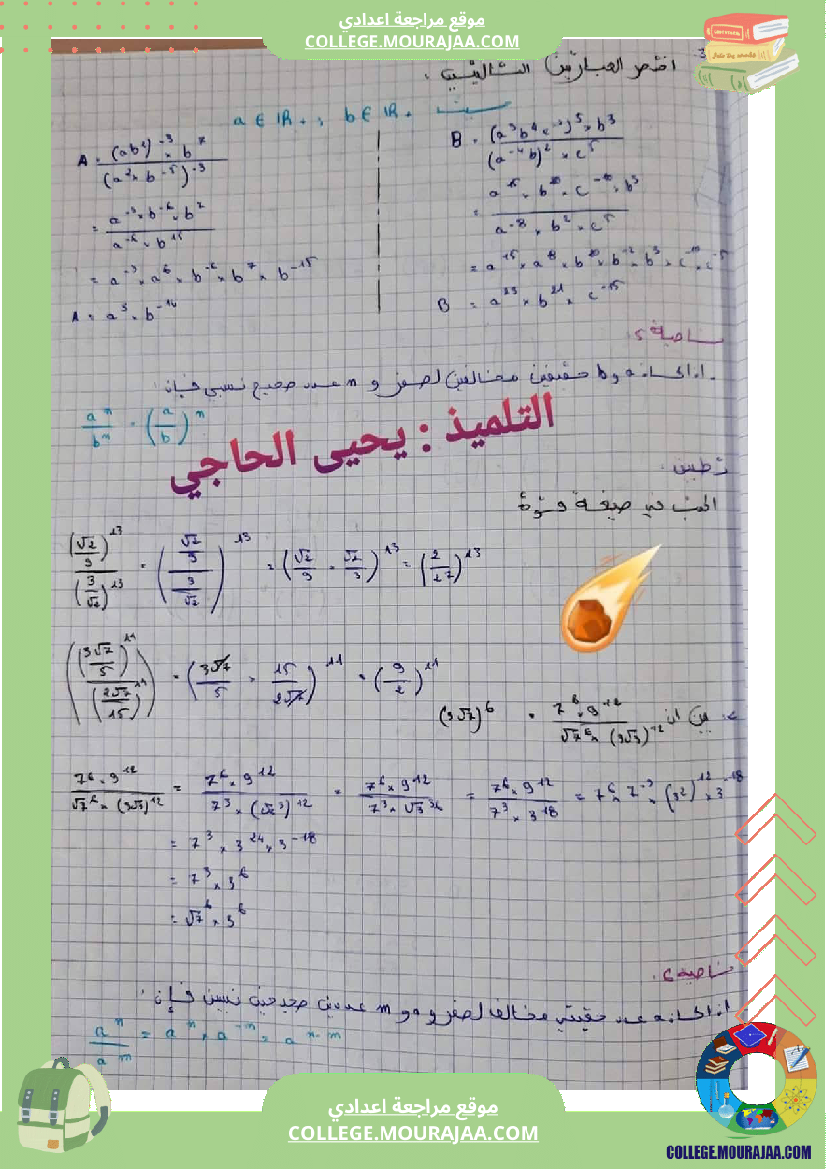 موقع مراجعة اعدادي
COLLEGE.MOURAJAA.COM
3 اختصر العبارتين التاليتين :
حيث a ∈ IR* ; b ∈ IR*
A = (ab²)⁻³ × b⁷ / (a² × b⁻⁵)⁻³
= a⁻³ × b⁻⁶ × b⁷ / a⁻⁶ × b¹⁵
= a⁻³ × a⁶ × b⁻⁶ × b⁷ × b⁻¹⁵
A = a³ × b⁻¹⁴
B = (a³b⁴c⁻²)⁵ × b³ / (a⁻⁴b)² × c⁵
= a¹⁵ × b²⁰ × c⁻¹⁰ × b³ / a⁻⁸ × b² × c⁵
= a¹⁵ × a⁸ × b²⁰ × b⁻² × b³ × c⁻¹⁰ × c⁻⁵
B = a²³ × b²¹ × c⁻¹⁵
خاصية 5 :
اذا كانا a و b حقيقيين مخالفين لصفر و n عدد صحيح نسبي فإن :
aⁿ / bⁿ = (a/b)ⁿ
التلميذ : يحيى الحاجي
تطبيق :
اكتب في صيغة قوة
(√2/9)¹³ / (3/√2)¹³ = ((√2/9) / (3/√2))¹³ = (√2/9 × √2/3)¹³ = (2/27)¹³
((3√7/5)¹¹ / (2√7/15)¹¹) = (3√7/5 × 15/2√7)¹¹ = (9/2)¹¹
بين ان 7⁶ × 9¹² / √7⁶ × (3√3)¹² = (3√7)⁶
7⁶ × 9¹² / √7⁶ × (3√3)¹² = 7⁶ × 9¹² / 7³ × (√3³)¹² = 7⁶ × 9¹² / 7³ × √3³⁶ = 7⁶ × 9¹² / 7³ × 3¹⁸ = 7⁶ × 7⁻³ × (3²)¹² × 3⁻¹⁸
= 7³ × 3²⁴ × 3⁻¹⁸
= 7³ × 3⁶
= √7⁶ × 3⁶
خاصية 6 :
اذا كان a عدد حقيقي مخالف لصفر و n و m عددين صحيحين نسبيين فإن :
aⁿ / aᵐ = aⁿ × a⁻ᵐ = aⁿ⁻ᵐ
موقع مراجعة اعدادي
COLLEGE.MOURAJAA.COM
COLLEGE.MOURAJAA.COM